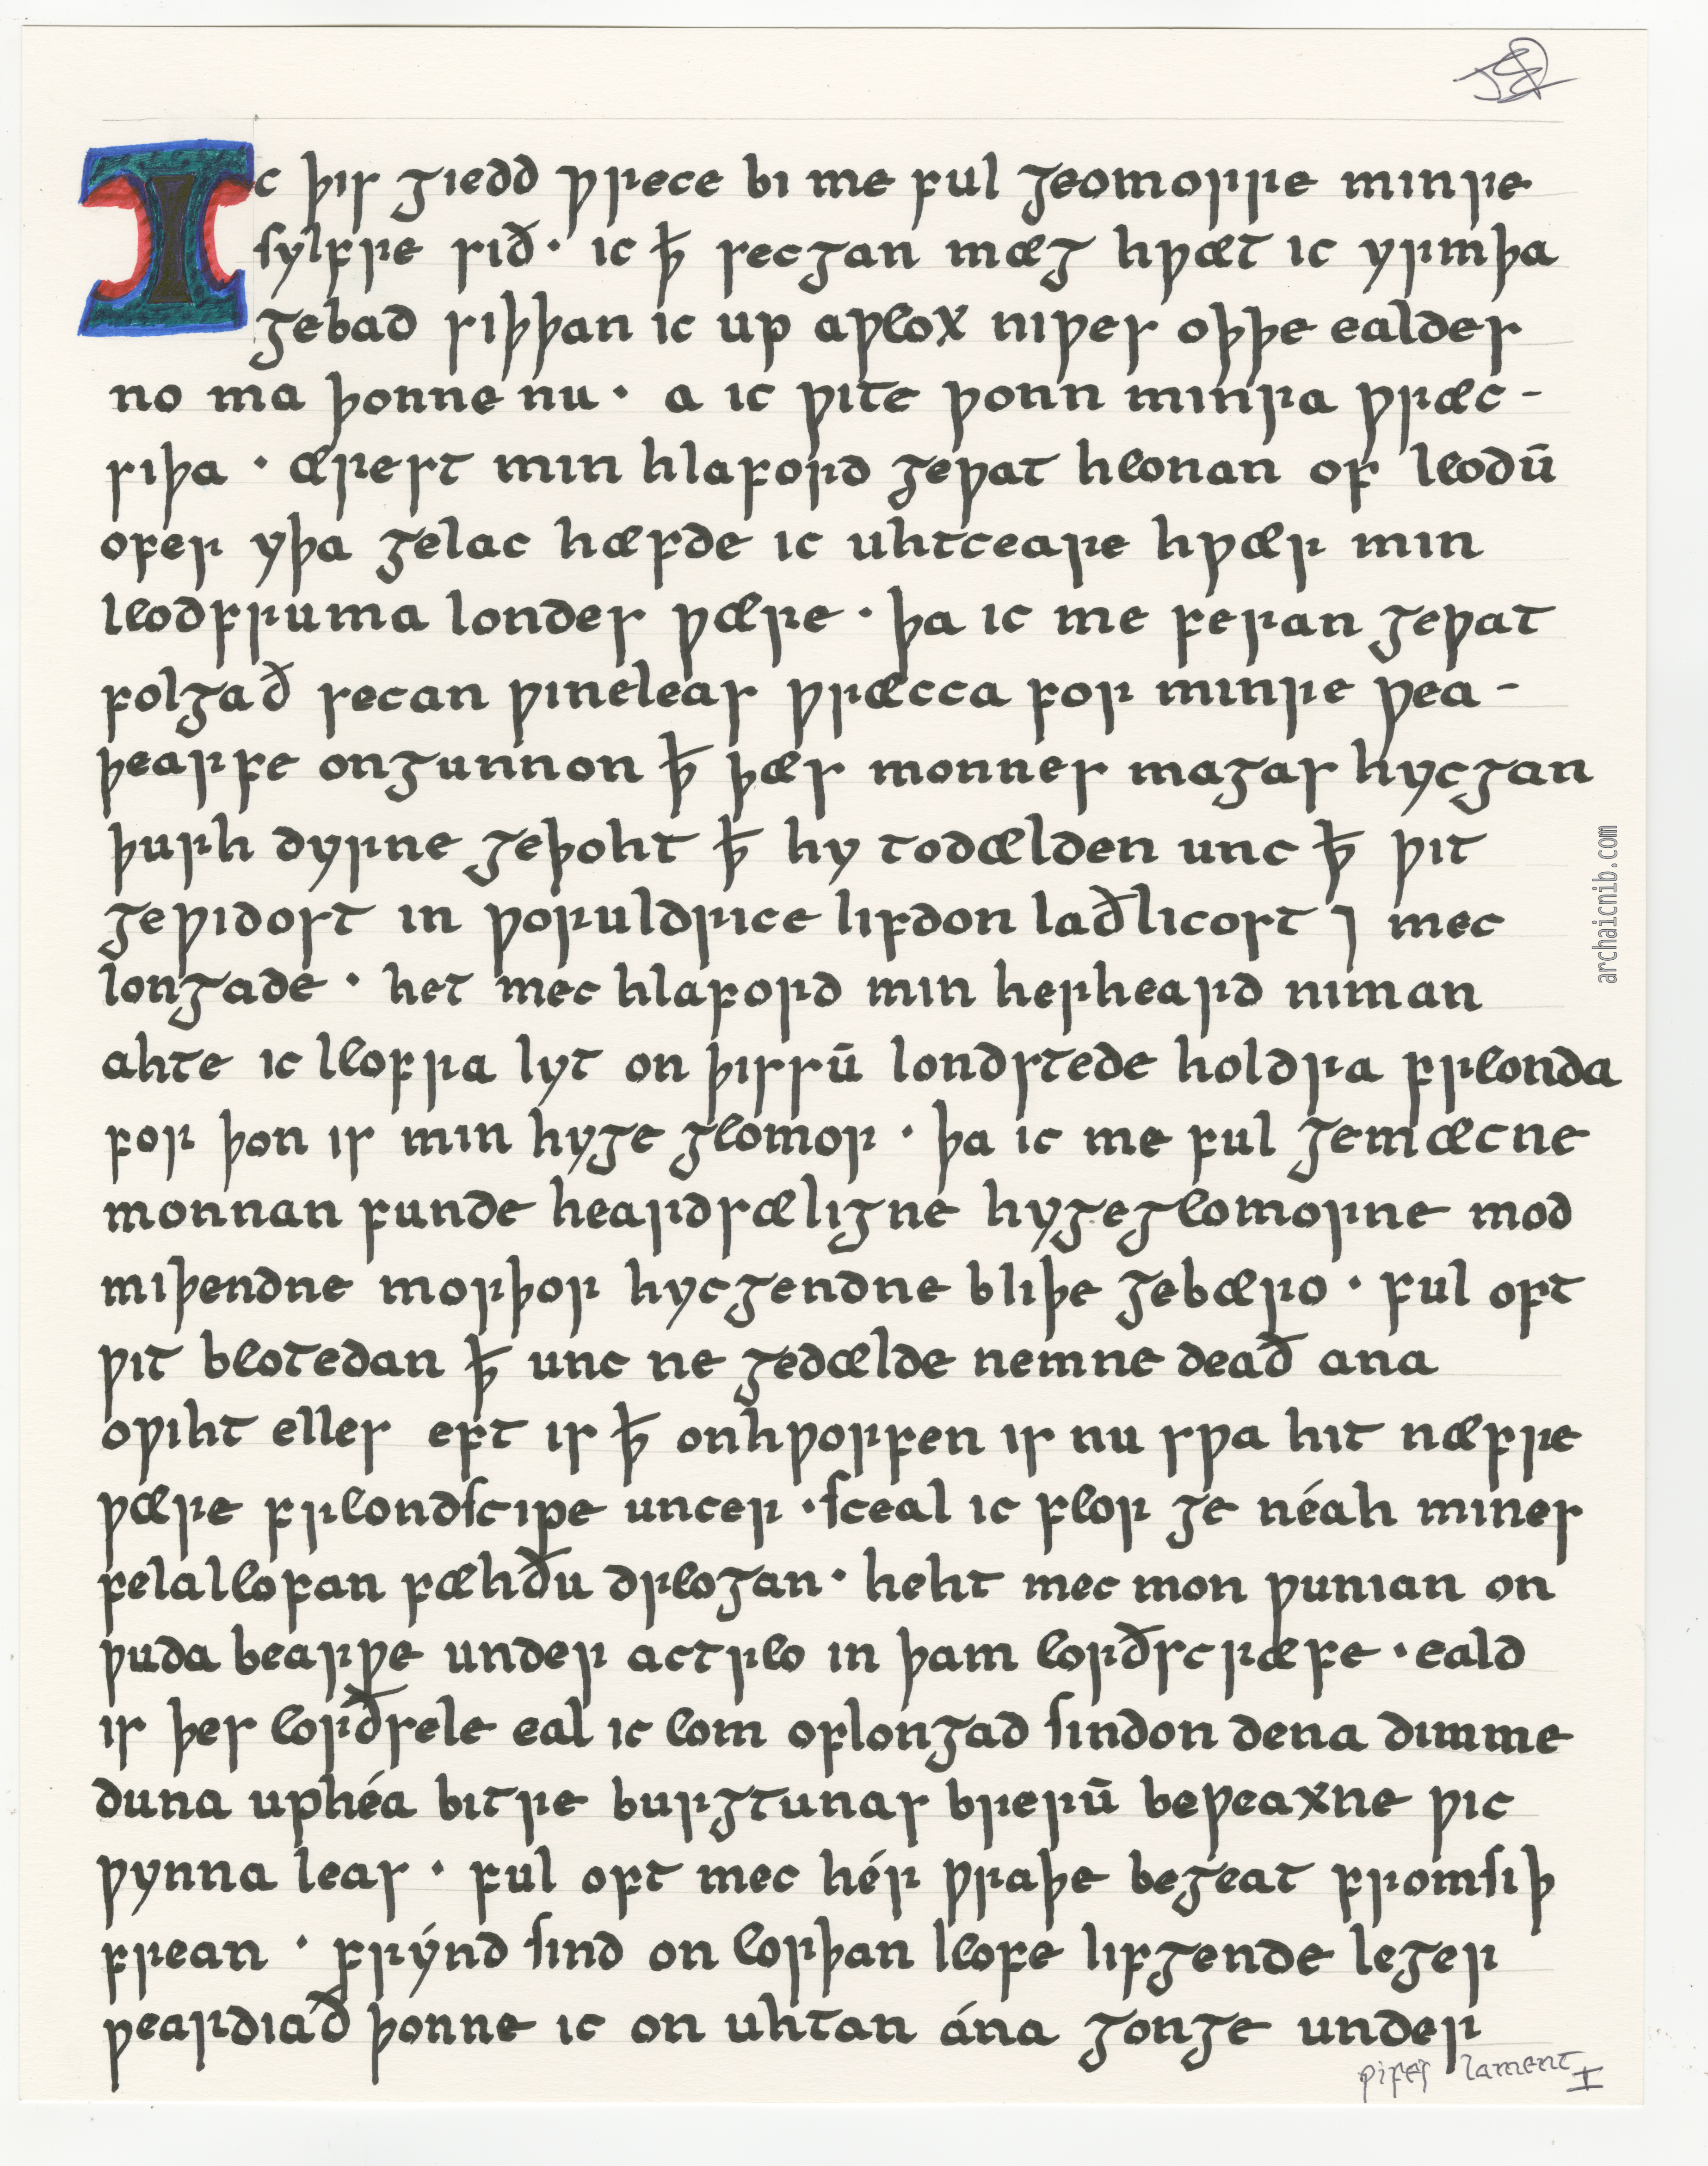 Ic þis giedd ƿrece bi me ful geomorre minre
ſylfre sið· ic ꝥ secgan mæg hƿæt ic yrmþa
gebad siþþan ic up aƿeox niƿes oþþe ealdes
no ma þonne nu· a ic ƿite ƿonn minra ƿræc-
siþa · ærest min hlaford geƿat heonan of leodū
ofer yþa gelac hæfde ic uhtceare hƿær min
leodfruma londes ƿære · þa ic me feran geƿat
folgað secan ƿineleas ƿræcca for minre ƿea-
þearfe ongunnon ꝥ þæs monnes magas hycgan
þurh dyrne geþoht ꝥ hy todælden unc ꝥ ƿit
geƿidost in ƿoruldrice lifdon laðlicost ⁊ mec
longade · het mec hlaford min herheard niman
ahte ic leofra lyt on þissū londstede holdra freonda
for þon is min hyge geomor · þa ic me ful gemæcne
monnan funde heardsæligne hygegeomorne mod
miþendne morþor hycgendne bliþe gebæro · ful oft
ƿit beotedan ꝥ unc ne gedælde nemne deað ana
oƿiht elles eft is ꝥ onhƿorfen is nu sƿa hit næfre
ƿære freondſcipe uncer ·ſceal ic feor ge néah mines
felaleofan fæhðu dreogan· heht mec mon ƿunian on
ƿuda bearƿe under actreo in þam eorðscræfe ·eald
is þes eorðsele eal ic eom oflongad ſindon dena dimme
duna uphéa bitre burgtunas brerū beƿeaxne ƿic
ƿynna leas · ful oft mec hér ƿraþe begeat fromſiþ
frean · frýnd ſind on eorþan leofe lifgende leger
ƿeardiað þonne ic on uhtan ána gonge under
ƿifes lament I
archaicnib.com